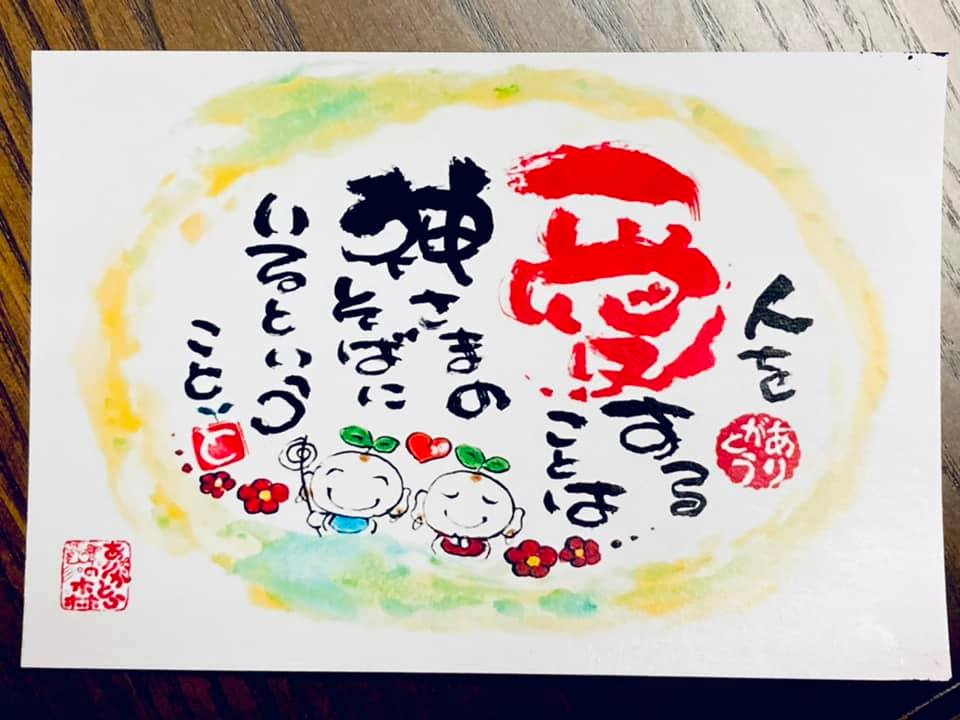 人を
愛する
ことは
神さまの
そばに
いるという
こと
ありがとう
ありがとう